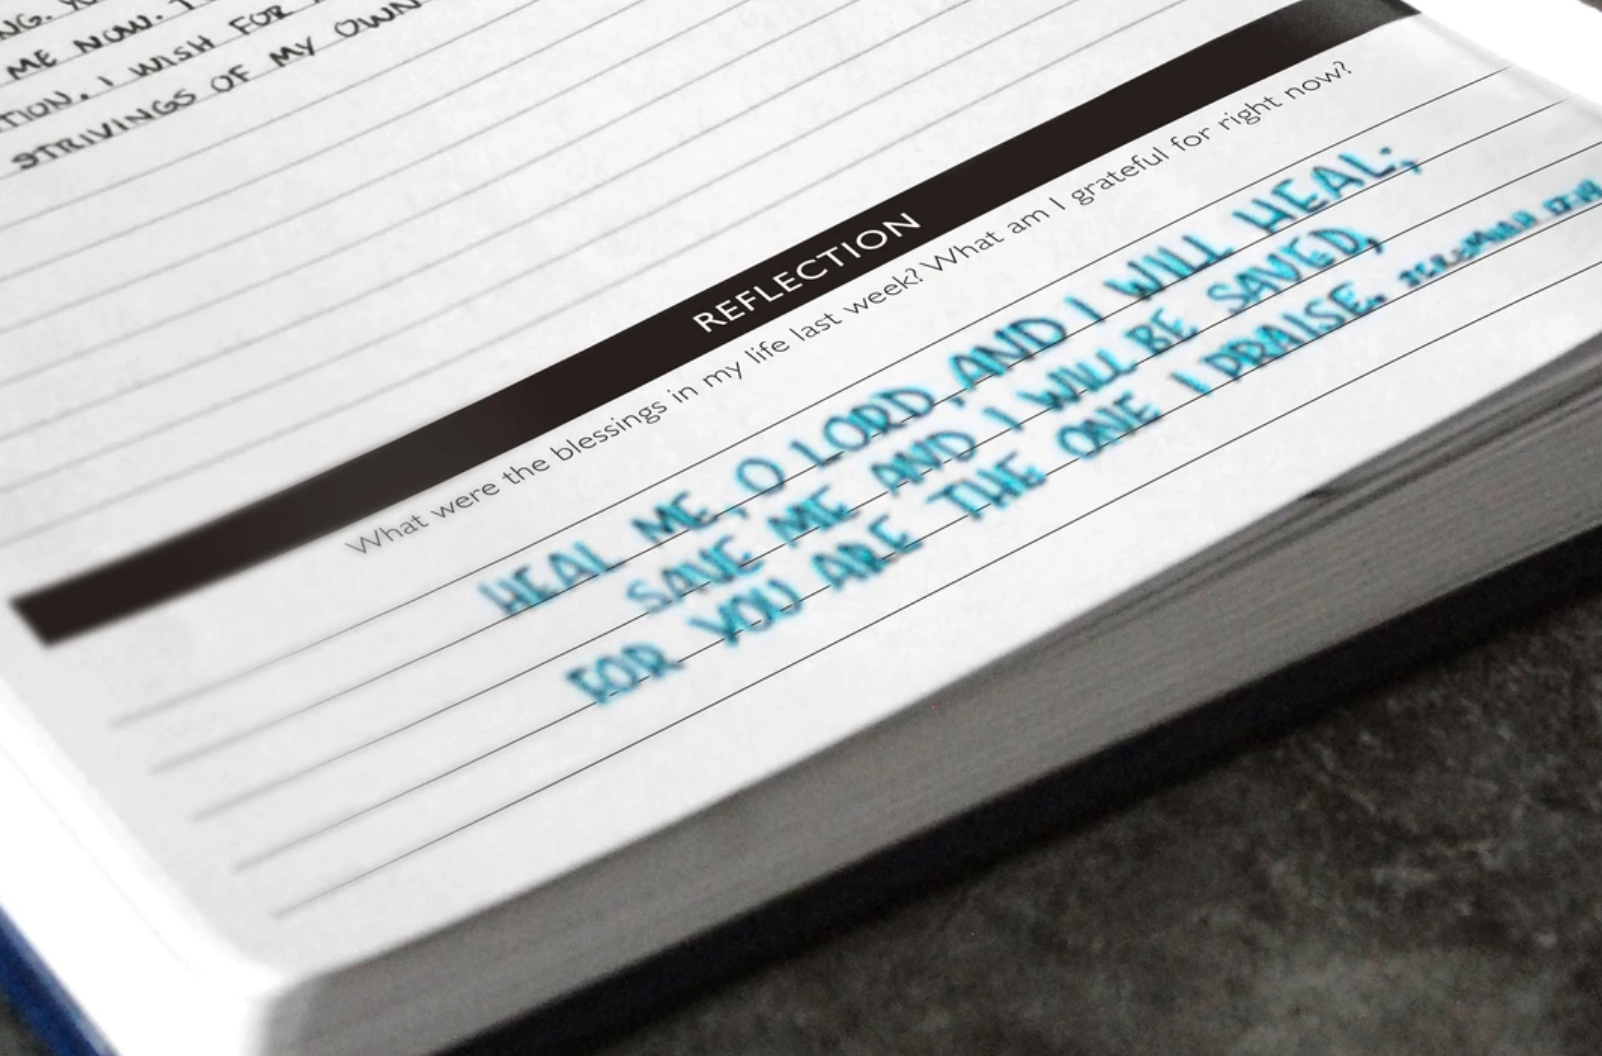 NG. 
ME NOW. 
TION. I WISH FOR
STRIVINGS OF MY OWN
REFLECTION
What were the blessings in my life last week? What am I grateful for right now?
HEAL ME, O LORD, AND I WILL HEAL;
SAVE ME AND I WILL BE SAVED,
FOR YOU ARE THE ONE I PRAISE. JEREMIAH